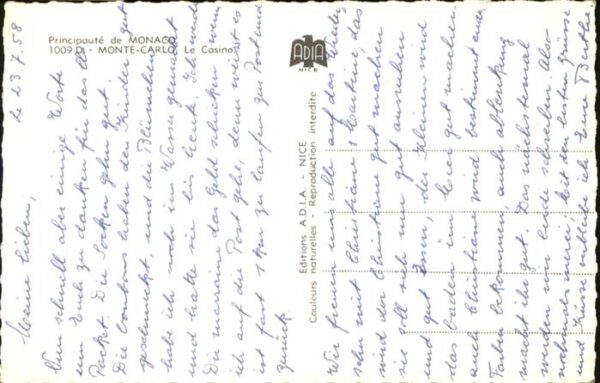 Principauté de MONACO
1009 D - MONTE-CARLO, Le Casino
ADIA
NICE
Editions A.D.I.A. - NICE
Couleurs naturelles - Reproduction interdite
le 23.7.58
Meine Lieben,
Nun schnell aber einige Worte
um Euch zu danken für das
Packet. Die Socken gehn gut.
Die bonbons haben den Kinder gut
geschmeckt, und die Blümchen
habe ich noch ins Wasser gemacht
und hatte sie bis heute. Schreibe
Die maman das Geld schicken wenn
ich auf die Post gehe, denn es ist
ist fast 1 km zu laufen zur Post und
zurück.
Wir freuen uns alle auf das
sehn mit Christiane. Martine, das
wird der Christiane gut machen
sie soll sich nur gut ausruhen
und gut essen, der Kleinen wird
das baden im Meer gut machen.
auch Christiane wird bestimmt eine
Farben bekommen, auch ablenkung
macht ihr gut. Das nächstemal
werden wir beide schreiben. Also
nochmals merci, mit den besten Grüsse
und Küsse verbleibe ich Eure